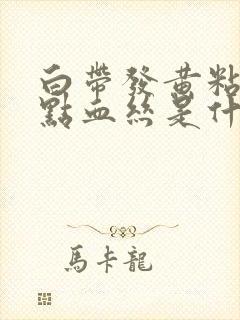 白帶發黃粘
點血絲是什
馬卡龍